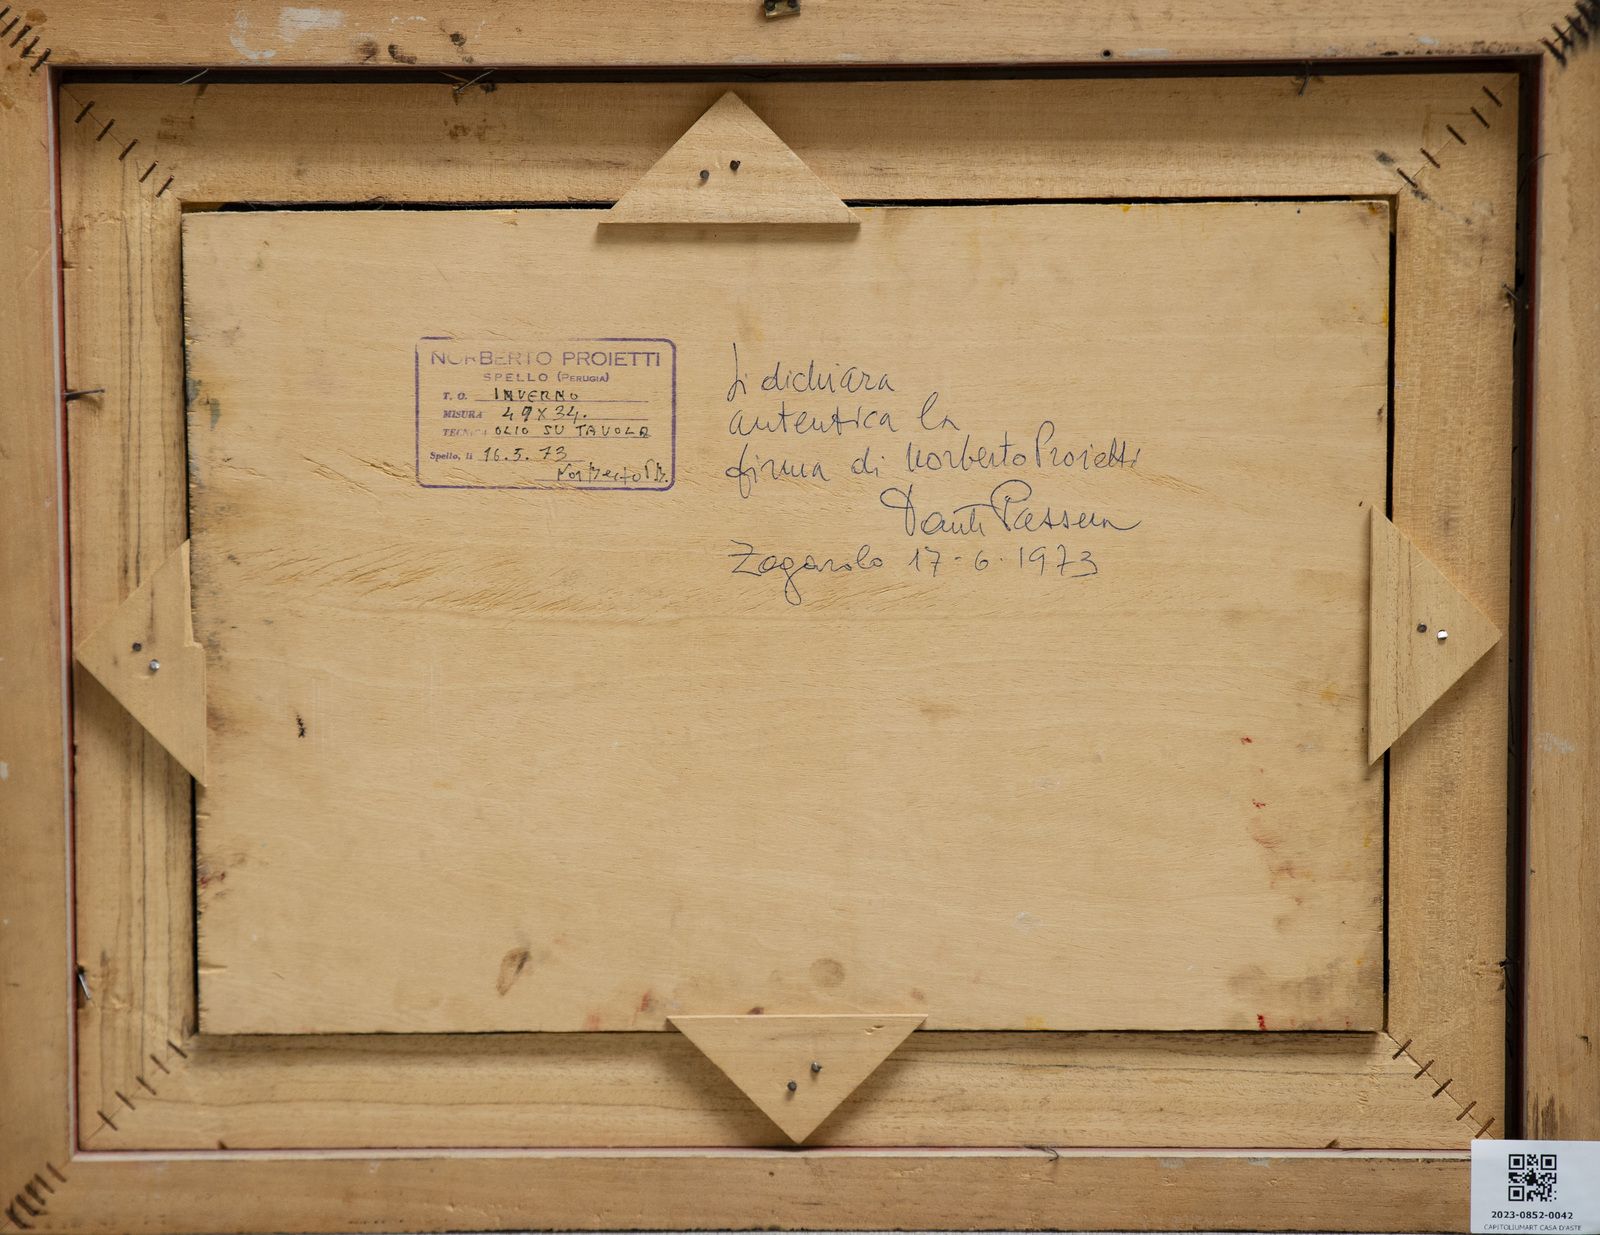 NORBERTO PROIETTI
SPELLO (PERUGIA)
T. O. INVERNO
MISURA 49 X 34.
TECNICA OLIO SU TAVOLA
Spello, li 16.5.73
Norberto
Si dichiara
autentica la
firma di Norberto Proietti
Dante Passera
Zagarolo 17-6-1973
2023-0852-0042
CAPITOLIUMART CASA D'ASTE